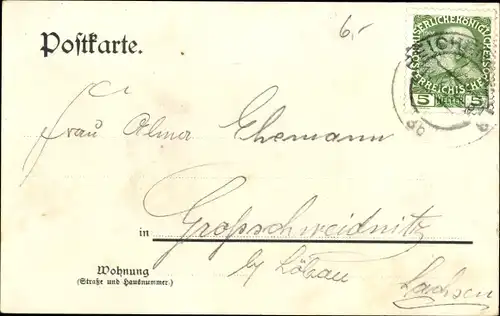 6,-
Postkarte.
KAISERLICHE KÖNIGLICHE
ÖSTERREICHISCHE
5 HELLER 5
REICHE
Frau Alma Ehemann
in Großschweidnitz
by Löbau
Wohnung
(Straße und Hausnummer.)
Sachsen